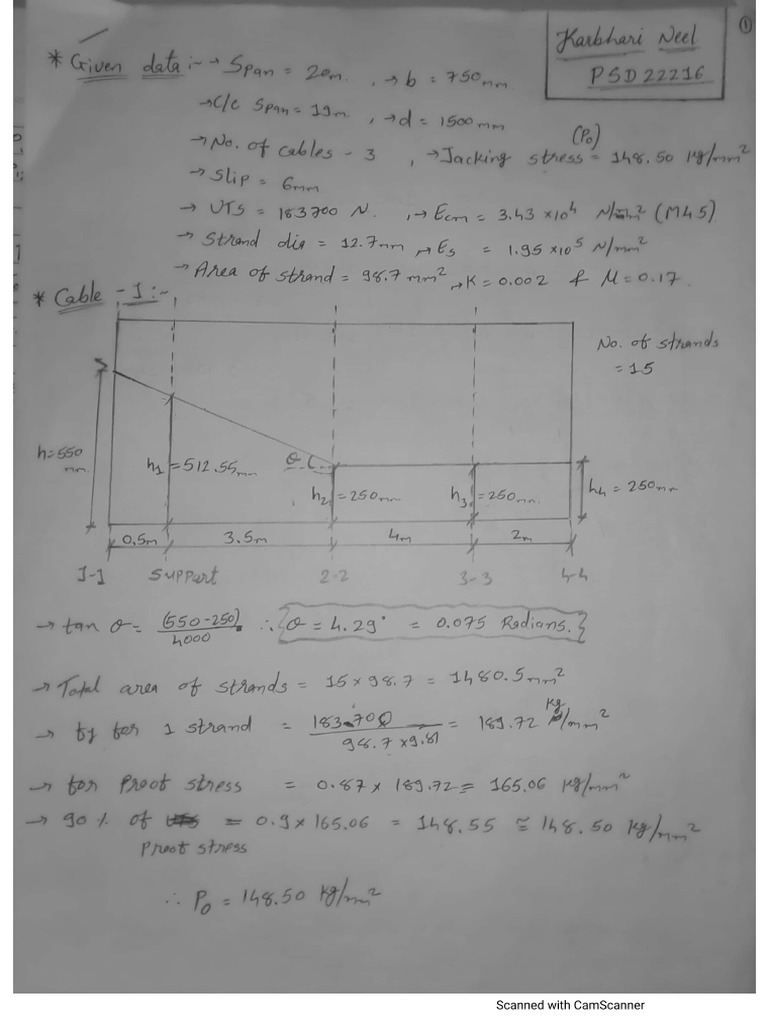 ①
Karbhari Neel
PSD22216
* Given data :- → Span = 20m. , → b = 750mm
→ C/c Span = 19m , → d = 1500mm
(P₀)
→ No. of cables - 3 , → Jacking stress = 148.50 kg/mm²
→ Slip = 6mm
→ UTS = 183700 N. , → Ecm = 3.43 × 10⁴ N/mm² (M45)
→ Strand dia = 12.7mm → Es = 1.95 × 10⁵ N/mm²
→ Area of strand = 98.7 mm² → K = 0.002 & μ = 0.17.
* Cable - 1 :-
No. of strands
= 15
h = 550
mm.
h₁ = 512.55mm
θ
h₂ = 250mm
h₃ = 250mm.
h₄ = 250mm
0.5m 3.5m 4m 2m
1-1 Support 2-2 3-3 4-4
→ tan θ = (550-250)/4000 ∴ θ = 4.29° = 0.075 Radians.
→ Total area of strands = 15 × 98.7 = 1480.5mm²
→ fy for 1 strand = 183700/98.7 × 9.81 = 189.72 kg/mm²
→ for Proof stress = 0.87 × 189.72 = 165.06 kg/mm²
→ 90 % of = 0.9 × 165.06 = 148.55 ≅ 148.50 kg/mm²
Proof stress
∴ P₀ = 148.50 kg/mm²
Scanned with CamScanner